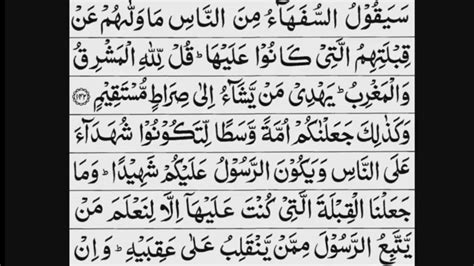 سَيَقُوۡلُ السُّفَهَآءُ مِنَ النَّاسِ مَا وَلّٰٮهُمۡ عَنۡ
قِبۡلَتِهِمُ الَّتِىۡ كَانُوۡا عَلَيۡهَا‌ ؕ قُلۡ لِّلّٰهِ الۡمَشۡرِقُ
وَالۡمَغۡرِبُ ؕ يَهۡدِىۡ مَنۡ يَّشَآءُ اِلٰى صِرَاطٍ مُّسۡتَقِيۡمٍ ﴿۱۴۲﴾
وَكَذٰلِكَ جَعَلۡنٰكُمۡ اُمَّةً وَّسَطًا لِّتَکُوۡنُوۡا شُهَدَآءَ
عَلَى النَّاسِ وَيَكُوۡنَ الرَّسُوۡلُ عَلَيۡكُمۡ شَهِيۡدًا ؕ وَمَا
جَعَلۡنَا الۡقِبۡلَةَ الَّتِىۡ كُنۡتَ عَلَيۡهَآ اِلَّا لِنَعۡلَمَ مَنۡ
يَّتَّبِعُ الرَّسُوۡلَ مِمَّنۡ يَّنۡقَلِبُ عَلٰى عَقِبَيۡهِ ؕ وَاِنۡ